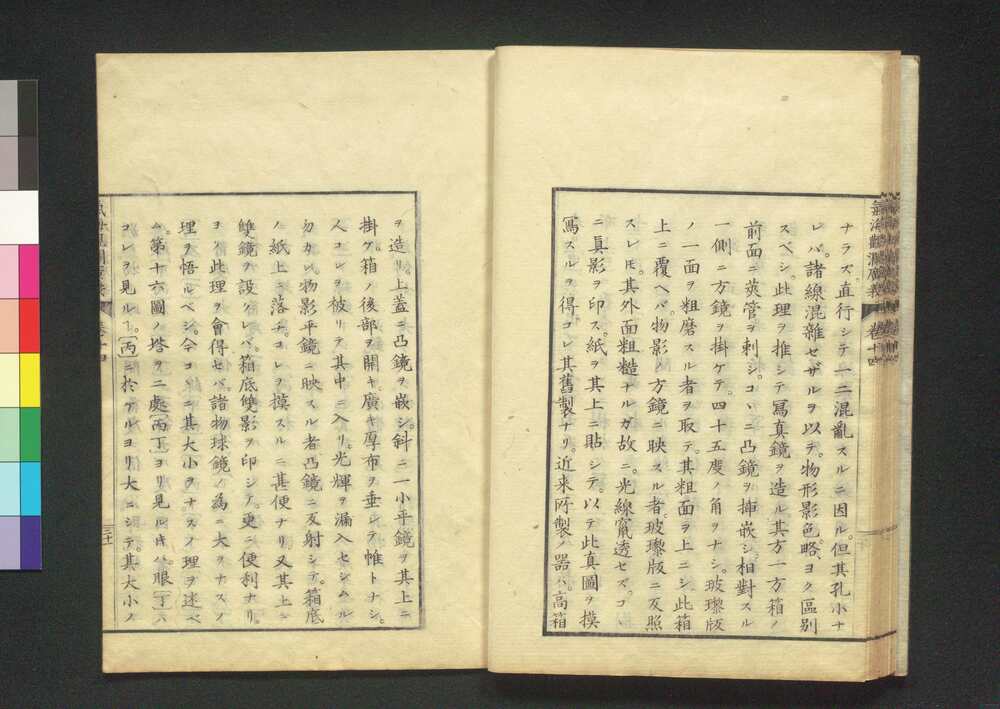 氣海觀瀾廣義 卷十四
ナラズ。直行シテ一二混亂スルニ因ル。但其孔小ナ
レバ。諸線混雜セザルヲ以テ。物形影色。略ヨク區別
スベシ。此理ヲ推シテ冩真鏡ヲ造ル。其方一方箱ノ
前面ニ莢管ヲ刺シ。コヽニ凸鏡ヲ揷嵌シ。相對スル
一側ニ方鏡ヲ掛ケテ。四十五度ノ角ヲナシ。玻瓈版
ノ一面ヲ粗磨スル者ヲ取テ。其粗面ヲ上ニシ。此箱
上ニ覆ヘバ。物影ノ方鏡ニ映スル者。玻瓈版ニ反照
スレ𪜈。其外面粗糙ナルガ故ニ。光線竄透セズ。コヽ
ニ真影ヲ印ス。紙ヲ其上ニ貼シテ。以テ此真圖ヲ摸
冩スルヲ得。コレ其舊製ナリ。近来所製ノ器ハ。高箱
ヲ造リ。上蓋ニ凸鏡ヲ嵌シ。斜ニ一小平鏡ヲ其上ニ
掛ケ。箱ノ後部ヲ開キ。廣キ厚布ヲ垂レテ帷トナシ。
人コレヲ被リテ其中ニ入リ。光輝ヲ漏入セシムル
勿カレ。物影平鏡ニ映スル者凸鏡ニ反射シテ。箱底
ノ紙上ニ落チ。コレヲ摸スルニ甚便ナリ。又其上ニ
雙鏡ヲ設クレバ。箱底雙影ヲ印シテ。更ニ便利ナリ。
ヨク此理ヲ會得セバ。諸物球鏡ノ為ニ大ヲナスノ
理ヲ悟ルベシ。今コヽニ其大小ヲナスノ理ヲ述ベ
ム。第十六圖ノ塔ヲ二處(丙丁)ヨリ見ル𪜈。眼(丁)ハ
コレヲ見ルヿ。(丙)ニ於ケルヨリ大ニシテ。其大小ノ
卷十四